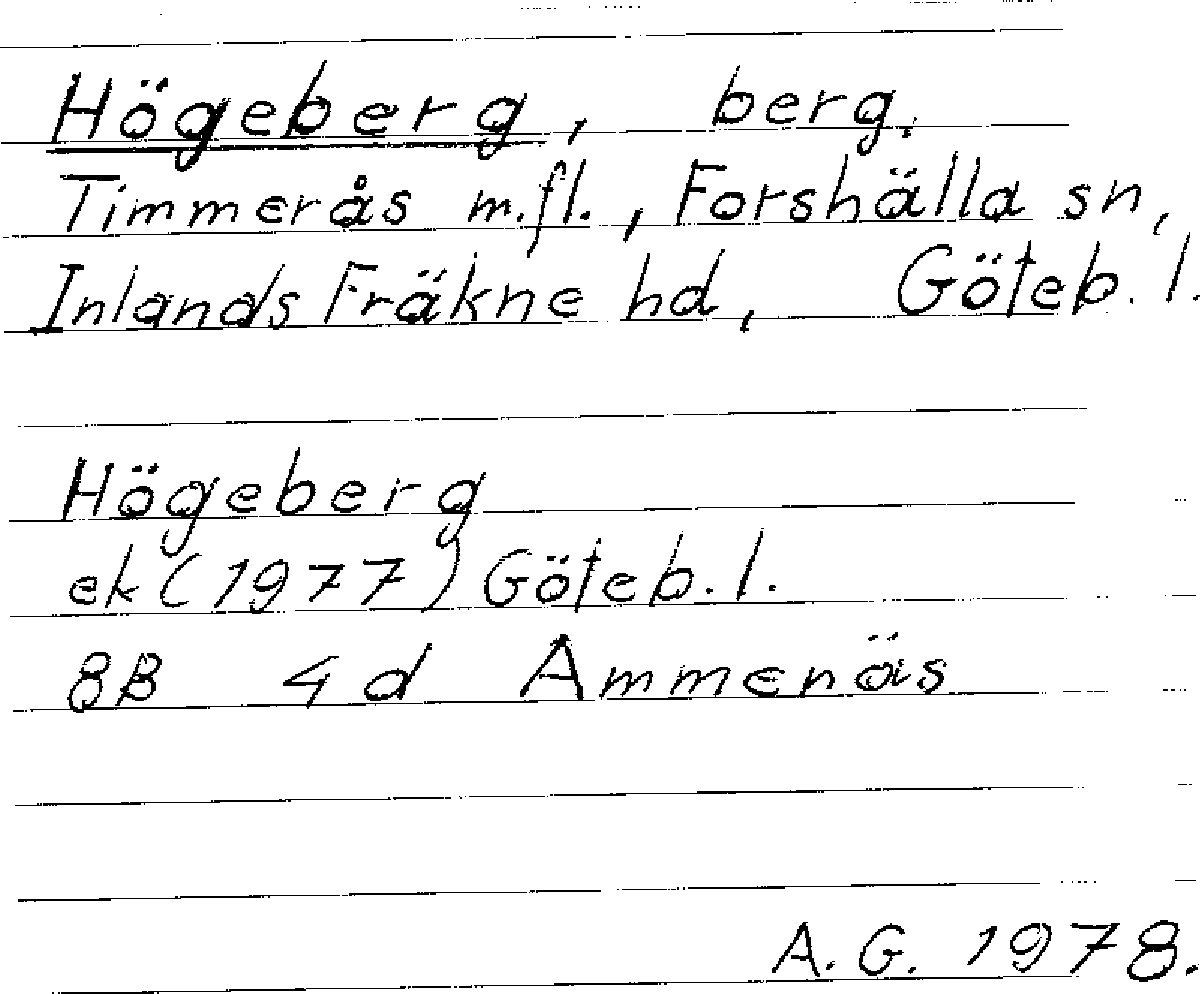 Högeberg, berg,
Timmerås m.fl., Forshälla sn,
Inlands Fräkne hd, Göteb. l.
Högeberg
ek (1977) Göteb. l.
8B 4d Ammenäs
A. G. 1978.